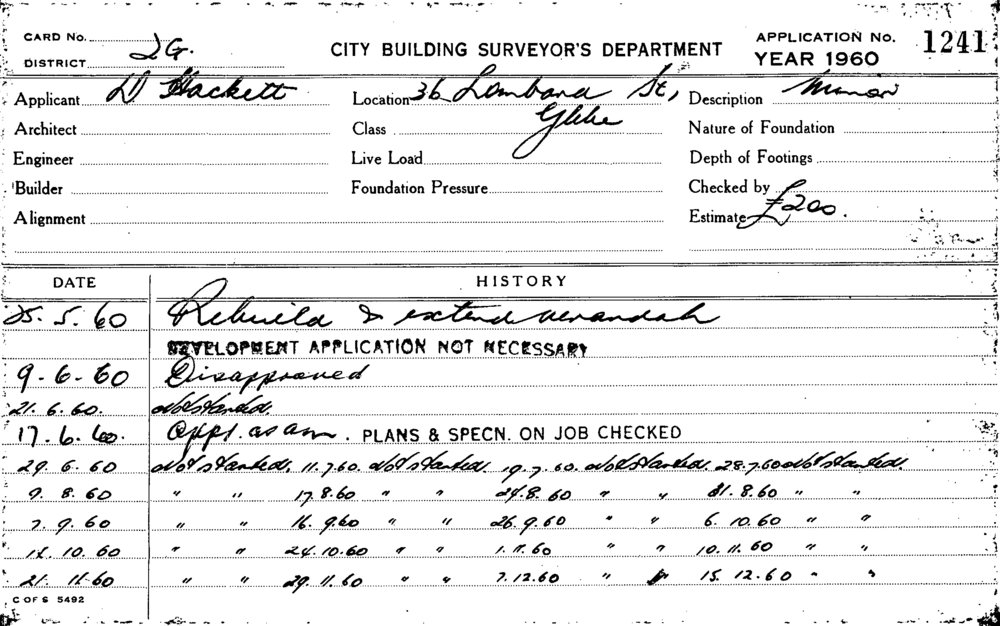 CARD No.
DISTRICT 2G.
CITY BUILDING SURVEYOR'S DEPARTMENT
APPLICATION No. 1241
YEAR 1960
Applicant D Hackett
Location 36 Lombard St,
Glebe
Description Minor
Architect
Class
Nature of Foundation
Engineer
Live Load
Depth of Footings
Builder
Foundation Pressure
Checked by
Alignment
Estimate £200.
DATE HISTORY
25. 5. 60 Rebuild & extend verandah
DEVELOPMENT APPLICATION NOT NECESSARY
9. 6. 60 Disapproved
21. 6. 60. Not started.
17. 6. 60. Appl. as am. PLANS & SPECN. ON JOB CHECKED
29. 6. 60 Not started. 11.7.60. Not started. 19. 7. 60. Not started. 28.7.60 Not started.
9. 8. 60 " " 17.8.60 " " 24.8.60 " " 31.8.60 " "
7. 9. 60 " " 16. 9.60 " " 26.9.60 " " 6. 10.60 " "
14. 10. 60 " " 24.10.60 " " 1.11.60 " " 10.11.60 " "
21. 11.60 " " 29.11.60 " " 7.12.60 " " 15.12.60 " "
C OF S 5492